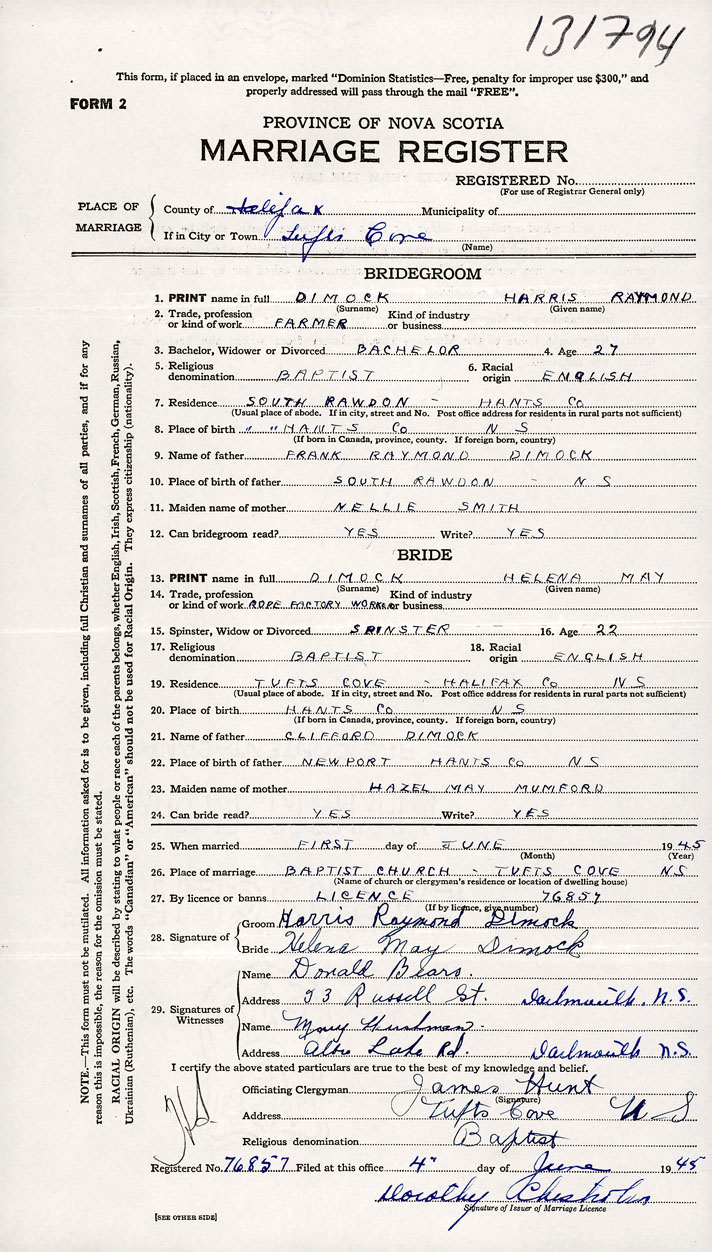 131794
This form, if placed in an envelope, marked "Dominion Statistics—Free, penalty for improper use $300," and
properly addressed will pass through the mail "FREE".
FORM 2
PROVINCE OF NOVA SCOTIA
MARRIAGE REGISTER
REGISTERED No.
(For use of Registrar General only)
PLACE OF MARRIAGE
County of Halifax Municipality of
If in City or Town Tufts Cove
(Name)
BRIDEGROOM
1. PRINT name in full DIMOCK HARRIS RAYMOND
(Surname) (Given name)
2. Trade, profession or kind of work FARMER Kind of industry or business
3. Bachelor, Widower or Divorced BACHELOR 4. Age 27
5. Religious denomination BAPTIST 6. Racial origin ENGLISH
7. Residence SOUTH RAWDON - HANTS Co
(Usual place of abode. If in city, street and No. Post office address for residents in rural parts not sufficient)
8. Place of birth " " HANTS Co N S
(If born in Canada, province, county. If foreign born, country)
9. Name of father FRANK RAYMOND DIMOCK
10. Place of birth of father SOUTH RAWDON - N S
11. Maiden name of mother NELLIE SMITH
12. Can bridegroom read? YES Write? YES
BRIDE
13. PRINT name in full DIMOCK HELENA MAY
(Surname) (Given name)
14. Trade, profession or kind of work ROPE FACTORY WORKER Kind of industry or business
15. Spinster, Widow or Divorced SPINSTER 16. Age 22
17. Religious denomination BAPTIST 18. Racial origin ENGLISH
19. Residence TUFTS COVE - HALIFAX Co N S
(Usual place of abode. If in city, street and No. Post office address for residents in rural parts not sufficient)
20. Place of birth HANTS Co N S
(If born in Canada, province, county. If foreign born, country)
21. Name of father CLIFFORD DIMOCK
22. Place of birth of father NEWPORT HANTS Co N S
23. Maiden name of mother HAZEL MAY MUMFORD
24. Can bride read? YES Write? YES
25. When married FIRST day of JUNE 1945
(Month) (Year)
26. Place of marriage BAPTIST CHURCH - TUFTS COVE N S
(Name of church or clergyman's residence or location of dwelling house)
27. By licence or banns LICENCE 76857
(If by licence, give number)
28. Signature of
Groom Harris Raymond Dimock
Bride Helena May Dimock
29. Signatures of Witnesses
Name Donald Bears.
Address 93 Russell St. Dartmouth, N.S.
Name Mary
Address Albro Lake Rd. Dartmouth N.S.
I certify the above stated particulars are true to the best of my knowledge and belief.
Officiating Clergyman James Hunt
(Signature)
Address Tufts Cove N S
Religious denomination Baptist
Registered No. 76857 Filed at this office 4" day of June 1945
Dorothy Chisholm
Signature of Issuer of Marriage Licence
[SEE OTHER SIDE]
NOTE.—This form must not be mutilated. All information asked for is to be given, including full Christian and surnames of all parties, and if for any
reason this is impossible, the reason for the omission must be stated.
RACIAL ORIGIN will be described by stating to what people or race each of the parents belongs, whether English, Irish, Scottish, French, German, Russian,
Ukrainian (Ruthenian), etc. The words "Canadian" or "American" should not be used for Racial Origin. They express citizenship (nationality).